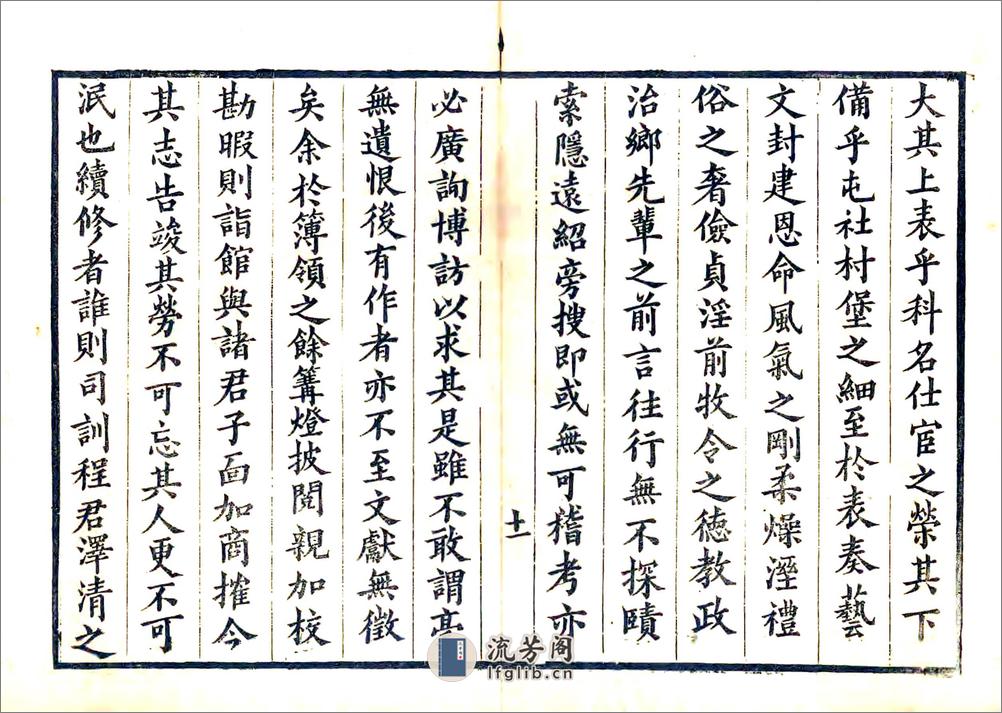 大其上表乎科名仕宦之榮其下
備乎屯社村堡之細至於表奏藝
文封建恩命風氣之剛柔燥溼禮
俗之奢儉貞淫前牧令之德教政
治鄉先輩之前言往行無不探賾
索隱遠紹旁搜即或無可稽考亦
十一
必廣詢博訪以求其是雖不敢謂毫
無遺恨後有作者亦不至文獻無徵
矣余於簿領之餘篝燈披閱親加校
勘暇則詣館與諸君子面加商搉今
其志告竣其勞不可忘其人更不可
泯也續修者誰則司訓程君澤清之
流芳阁
lfglib.cn